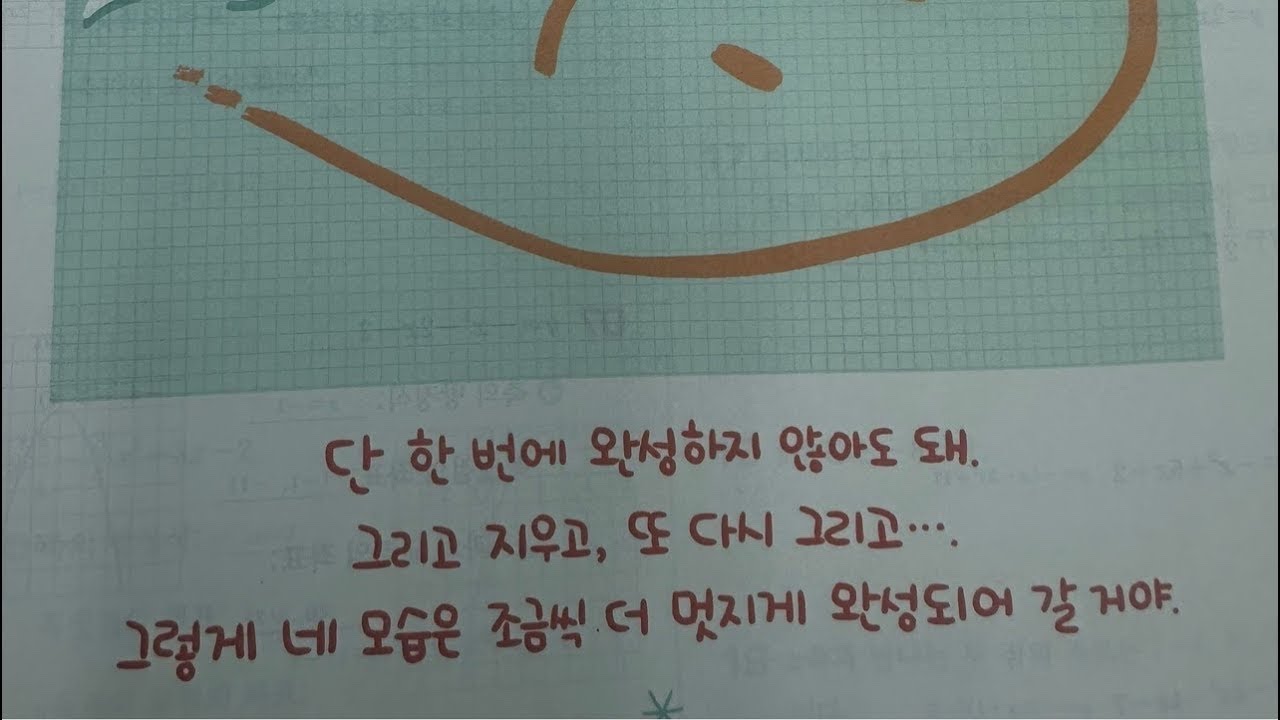 단 한 번에 완성하지 않아도 돼.
그리고 지우고, 또 다시 그리고….
그렇게 네 모습은 조금씩 더 멋지게 완성되어 갈 거야.